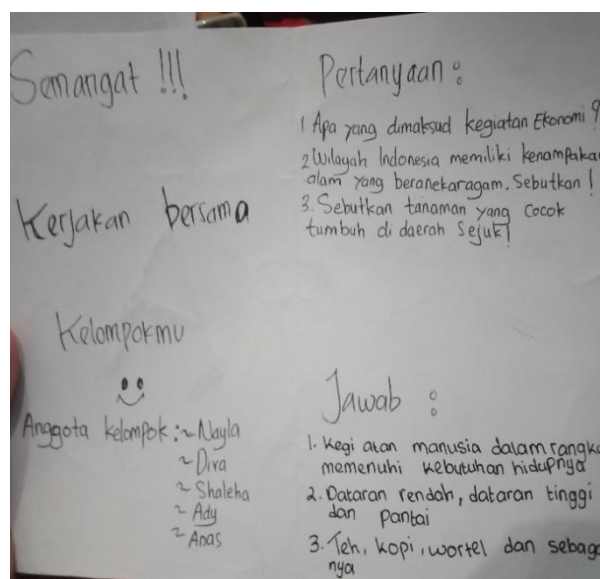 Semangat !!!
Kerjakan bersama
Kelompokmu
Anggota kelompok : ~ Nayla
~ Diva
~ Shaleha
~ Ady
~ Anas
Pertanyaan :
1 Apa yang dimaksud kegiatan Ekonomi ?
2 Wilayah Indonesia memiliki kenampakan
alam yang beranekaragam. Sebutkan !
3. Sebutkan tanaman yang cocok
tumbuh di daerah sejuk !
Jawab :
1. Kegi atan manusia dalam rangka
memenuhi kebutuhan hidupnya
2. Dataran rendah, dataran tinggi
dan pantai
3. Teh, kopi, wortel dan sebaga
nya